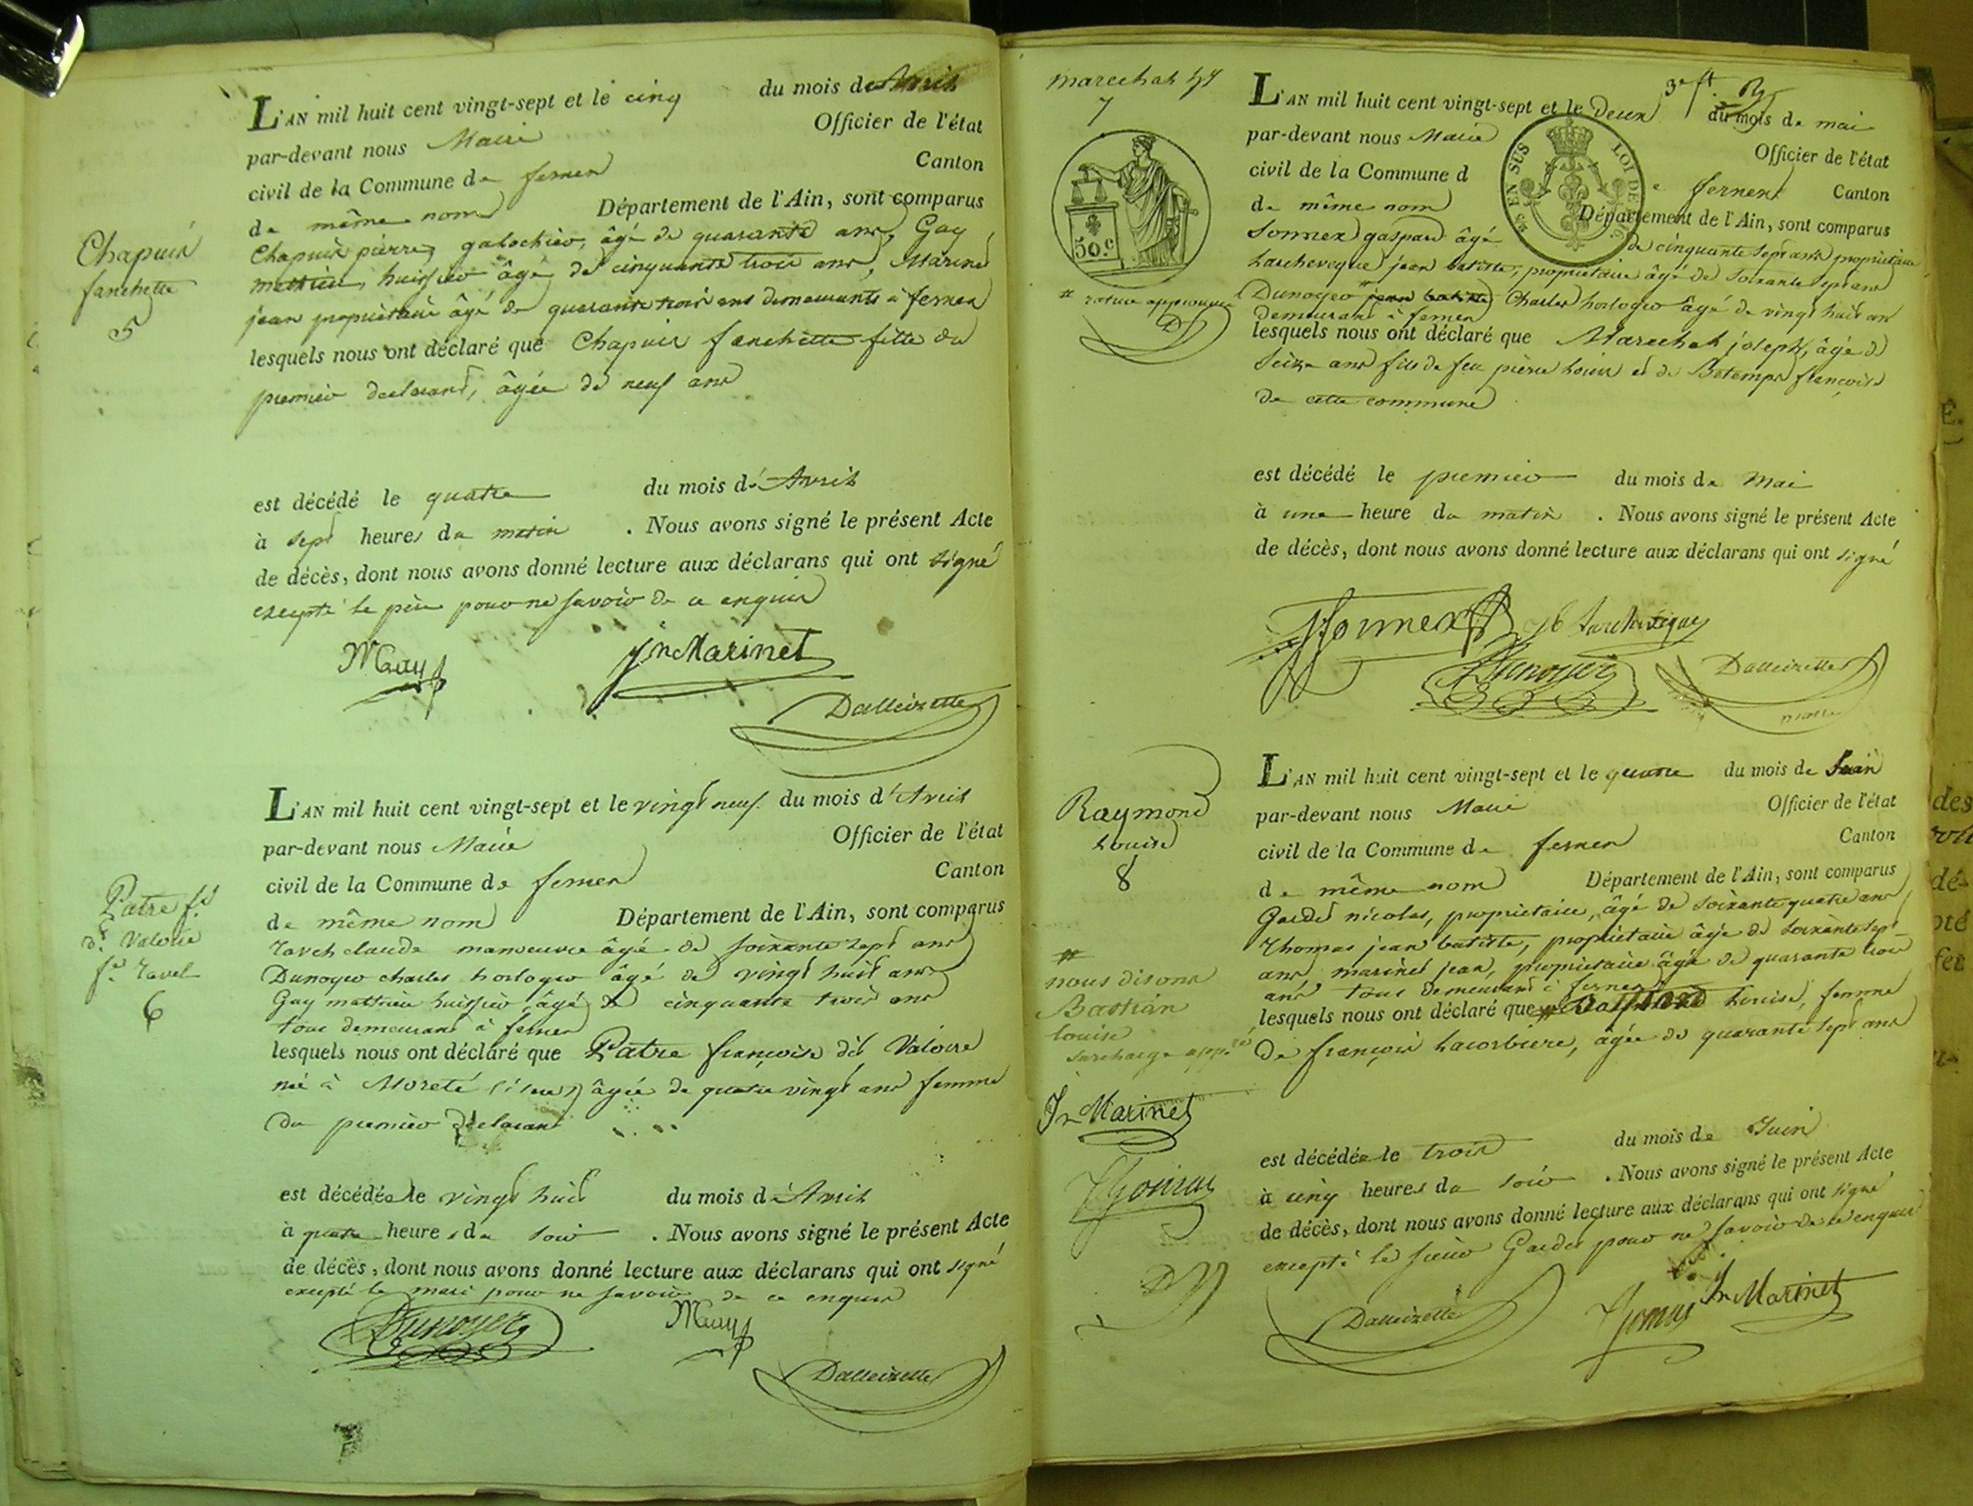 Chapuis
fanchette
5
L'AN mil huit cent vingt-sept et le cinq du mois de Avril
par-devant nous Maire Officier de l'état
civil de la Commune de fernex Canton
de même nom Département de l'Ain, sont comparus
Chapuis pierre, galochier, âgé de quarante ans, Gay
mathieu huissier âgé de cinquante trois ans, Marinet
jean propriétaire âgé de quarante trois ans demeurants à fernex
lesquels nous ont déclaré que Chapuis fanchette fille du
premier declarant, âgée de neuf ans
est décédé le quatre du mois d'Avril
à sept heures du matin . Nous avons signé le présent Acte
de décès, dont nous avons donné lecture aux déclarans qui ont signé
excepté le père pour ne savoir de ce enquis
MGay Jn Marinet
Dalleizette
Patre fse
dt Valoire
fe Ravel
6
L'AN mil huit cent vingt-sept et le vingt neuf du mois d'Avril
par-devant nous Maire Officier de l'état
civil de la Commune de fernex Canton
de même nom Département de l'Ain, sont comparus
claude manoeuvre âgé de soixante sept ans
Dunoyer charles horloger âgé de vingt huit ans
Gay mathieu huissier, âgé de cinquante trois ans
tous demeurans à fernex
lesquels nous ont déclaré que Patre françoise dit Valoire
née à âgée de quatre vingt ans femme
du premier déclarant
est décédée le vingt huit du mois d'Avril
à quatre heures du soir . Nous avons signé le présent Acte
de décès, dont nous avons donné lecture aux déclarans qui ont signé
excepté le mari pour ne savoir de ce enquis
Dunoyer MGay
Dalleizette
marechal jh
7
50 c
EN SUS LOI DE
# rature approuvée
D
L'AN mil huit cent vingt-sept et le Deux du mois de mai
par-devant nous Maire Officier de l'état
civil de la Commune de fernex Canton
de même nom Département de l'Ain, sont comparus
Sonnex gaspard âgé de cinquante sept ans propriétaire
Larcheveque jean batiste, propriétaire âgé de soixante sept ans
Dunoyer # jean batiste Charles horloger âgé de vingt huit ans
demeurans à fernex
lesquels nous ont déclaré que Marechal joseph, âgé de
seize ans fils de feu pierre louis et de Betemps françoise
de cette commune
est décédé le premier du mois de Mai
à une heure du matin . Nous avons signé le présent Acte
de décès, dont nous avons donné lecture aux déclarans qui ont signé
Sonnex jb Larcheveque
Dunoyer Dalleizette
Raymond
Louise
8
#
nous disons
Bastian
louise
surcharge appée
Jn Marinet
Thomas
D
L'AN mil huit cent vingt-sept et le quatre du mois de Juin
par-devant nous Maire Officier de l'état
civil de la Commune de fernex Canton
de même nom Département de l'Ain, sont comparus
Gardet nicolas, propriétaire, âgé de soixante quatre ans
Thomas jean batiste, propriétaire âgé de soixante sept
ans marinet jean, propriétaire âgé de quarante trois
ans tous demeurans à fernex
lesquels nous ont déclaré que # Louise, femme
de françois Lacorbiere, âgée de quarante sept ans
est décédée le trois du mois de Juin
à cinq heures du soir . Nous avons signé le présent Acte
de décès, dont nous avons donné lecture aux déclarans qui ont signé
excepté le sieur Gardet pour ne savoir de ce enquis
Dalleizette Thomas Jn Marinet